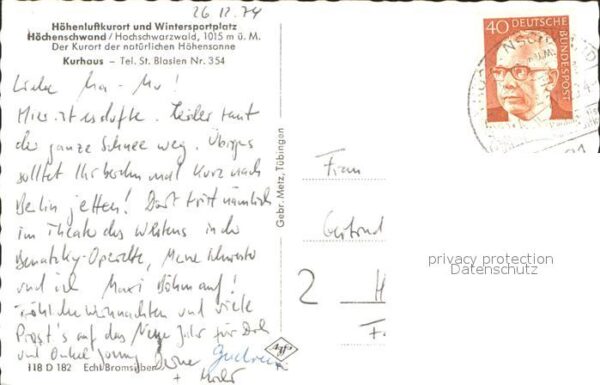 26.12.74
Höhenluftkurort und Wintersportplatz
Höchenschwand / Hochschwarzwald, 1015 m ü. M.
Der Kurort der natürlichen Höhensonne
Kurhaus – Tel. St. Blasien Nr. 354
Liebe Ma-Mu!
Hier ist es dufte. Leider taut
der ganze Schnee weg. Übrigens
solltet Ihr beiden mal kurz nach
Berlin jetten! Dort tritt nämlich
im Theater des Westens in der
Benatzky-Operette, Meine Schwester
und ich Maxi Böhm auf!
Fröhliche Weihnachten und viele
Prost's auf das Neue Jahr für Dich
und Onkel Deine
+
118 D 182 Echt Bromsilber
Gebr. Metz, Tübingen
40 DEUTSCHE
BUNDESPOST
Frau
Gertrud
2 H
privacy protection
Datenschutz